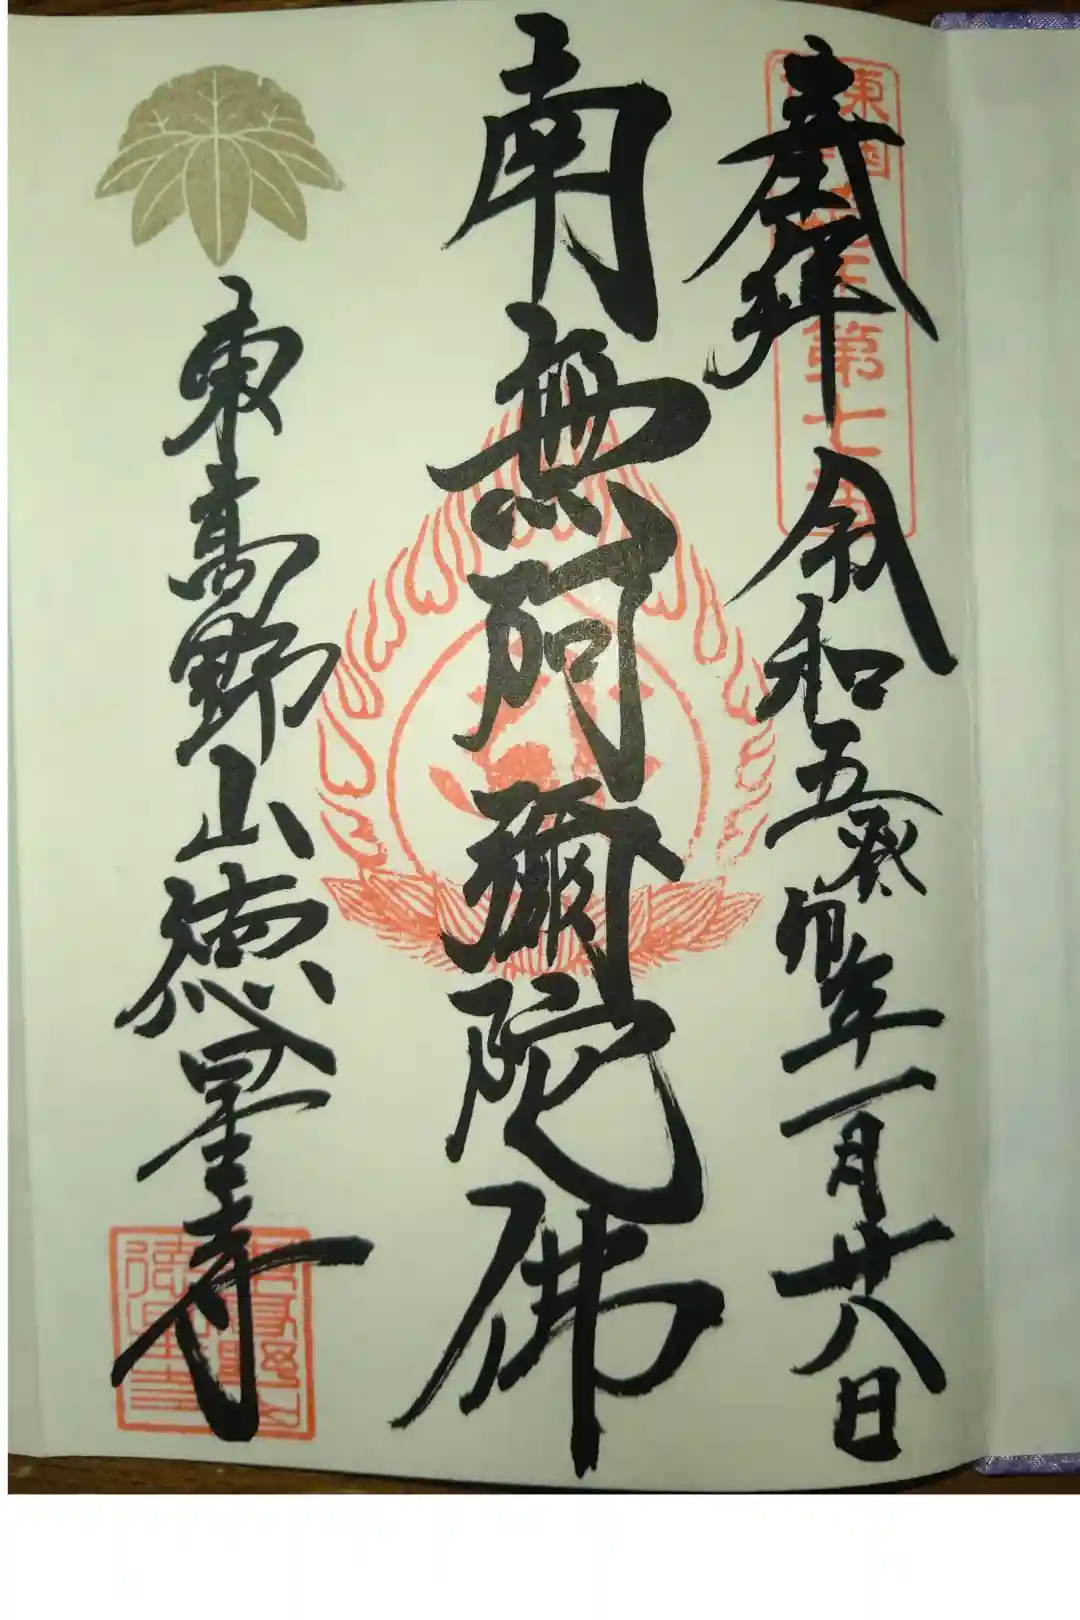 奉拝 令和五癸卯年一月廿八日
南無阿彌陀佛
東高野山徳星寺
第七
徳星寺